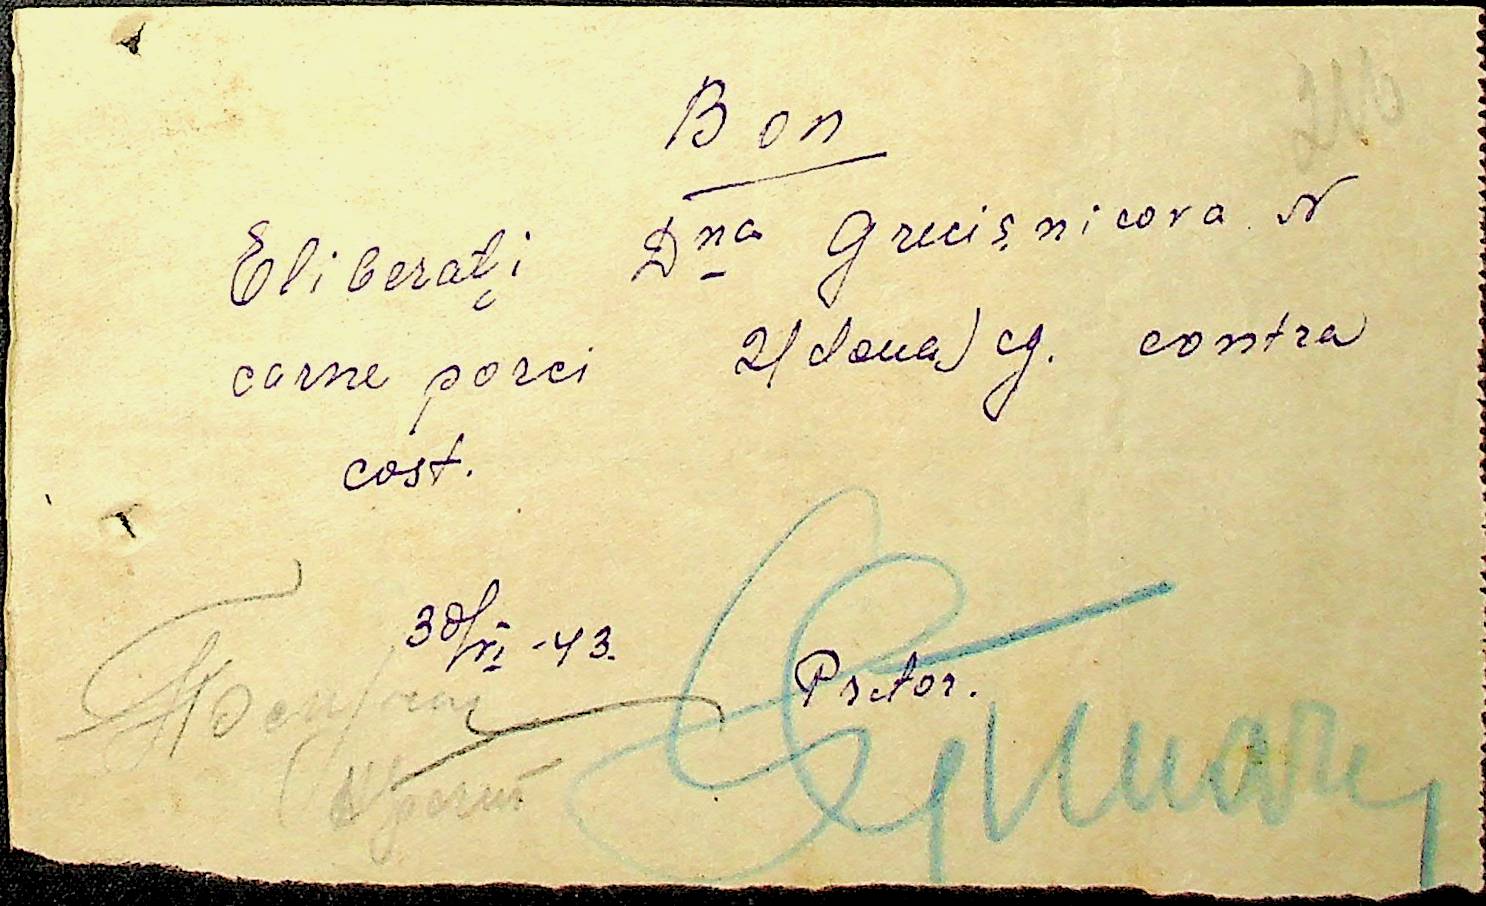 Bon
Eliberați Dna Grecișnicova N
carne porci 2(doua) cg. contra
cost.
30/VI-43.
Pretor.